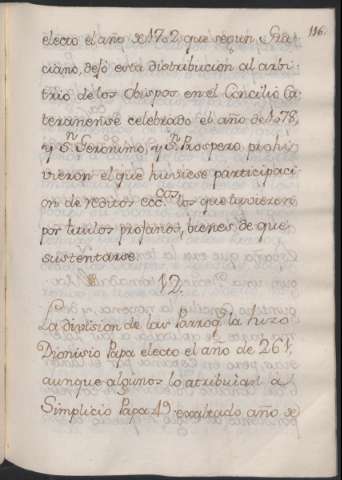 116.
electo el año de 1702 que segun Gra-
ciano, dejó esta distribucion al arbi-
trio de los Obispos en el Concilio La-
teranense celebrado el año de 1178,
y Sn. Geronimo, y Sn. Prospero prohi-
vieron el que huviese participaci-
on de reditos eccos. los que tuviesen
por titulos profanos, bienes de que
sustentarse.
12.
La division de las Parroqas. la hizo
Dionisio Papa electo el año de 261,
aunque algunos lo atribuian à
Simplicio Papa 49 exaltado año de